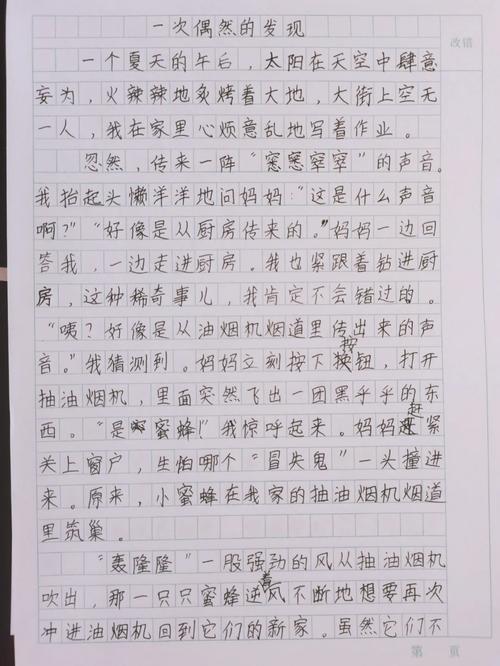 一次偶然的发现
改错
一个夏天的午后，太阳在天空中肆意
妄为，火辣辣地炙烤着大地，大街上空无
一人，我在家里心烦意乱地写着作业。
忽然，传来一阵“窸窸窣窣”的声音。
我抬起头懒洋洋地问妈妈：“这是什么声音
啊？”“好像是从厨房传来的。”妈妈一边回
答我，一边走进厨房。我也紧跟着钻进厨
房，这种稀奇事儿，我肯定不会错过的。
“咦？好像是从油烟机烟道里传出来的声
音。”我猜测到。妈妈立刻按下按钮，打开
抽油烟机，里面突然飞出一团黑乎乎的东
西。“是蜜蜂！”我惊呼起来。妈妈赶紧
关上窗户，生怕哪个“冒失鬼”一头撞进
来。原来，小蜜蜂在我家的抽油烟机烟道
里筑巢。
“轰隆隆”一股强劲的风从抽油烟机
吹出，那一只只蜜蜂逆着风不断地想要再次
冲进油烟机回到它们的新家。虽然它们不
第 页